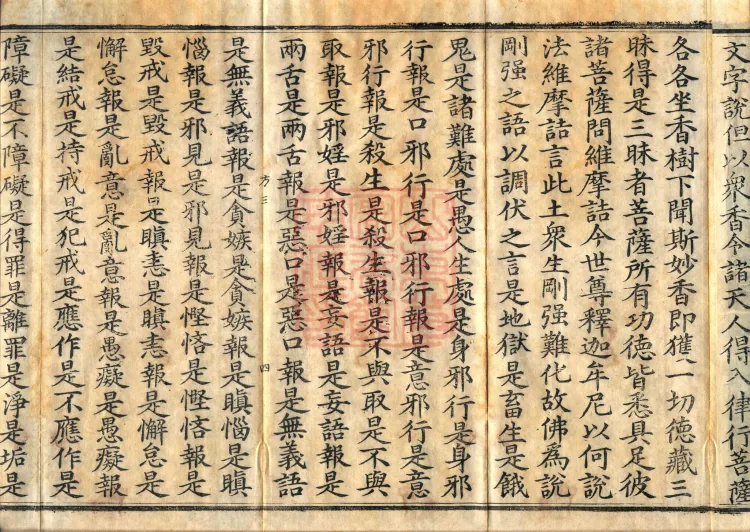 文字說但以衆香令諸天人得入律行菩薩
各各坐香樹下聞斯妙香即獲一切德藏三
昧得是三昧者菩薩所有功德皆悉具足彼
諸菩薩問維摩詰今世尊釋迦牟尼以何說
法維摩詰言此土衆生剛强難化故佛為說
剛强之語以調伏之言是地獄是畜生是餓
鬼是諸難處是愚人生處是身邪行是身邪
行報是口邪行是口邪行報是意邪行是意
邪行報是殺生是殺生報是不與取是不與
取報是邪婬是邪婬報是妄語是妄語報是
兩舌是兩舌報是惡口是惡口報是無義語
方三 四
是無義語報是貪嫉是貪嫉報是瞋惱是瞋
惱報是邪見是邪見報是慳悋是慳悋報是
毀戒是毀戒報是瞋恚是瞋恚報是懈怠是
懈怠報是亂意是亂意報是愚癡是愚癡報
是結戒是持戒是犯戒是應作是不應作是
障礙是不障礙是得罪是離罪是淨是垢是